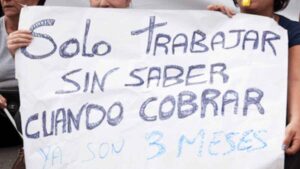 Solo TRABAJAR
SIN SABER
CUANDO COBRAR
YA SON 3 MESES